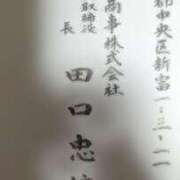 都中央区新富一・三・一一
商事株式会社
取締役
長
田口忠